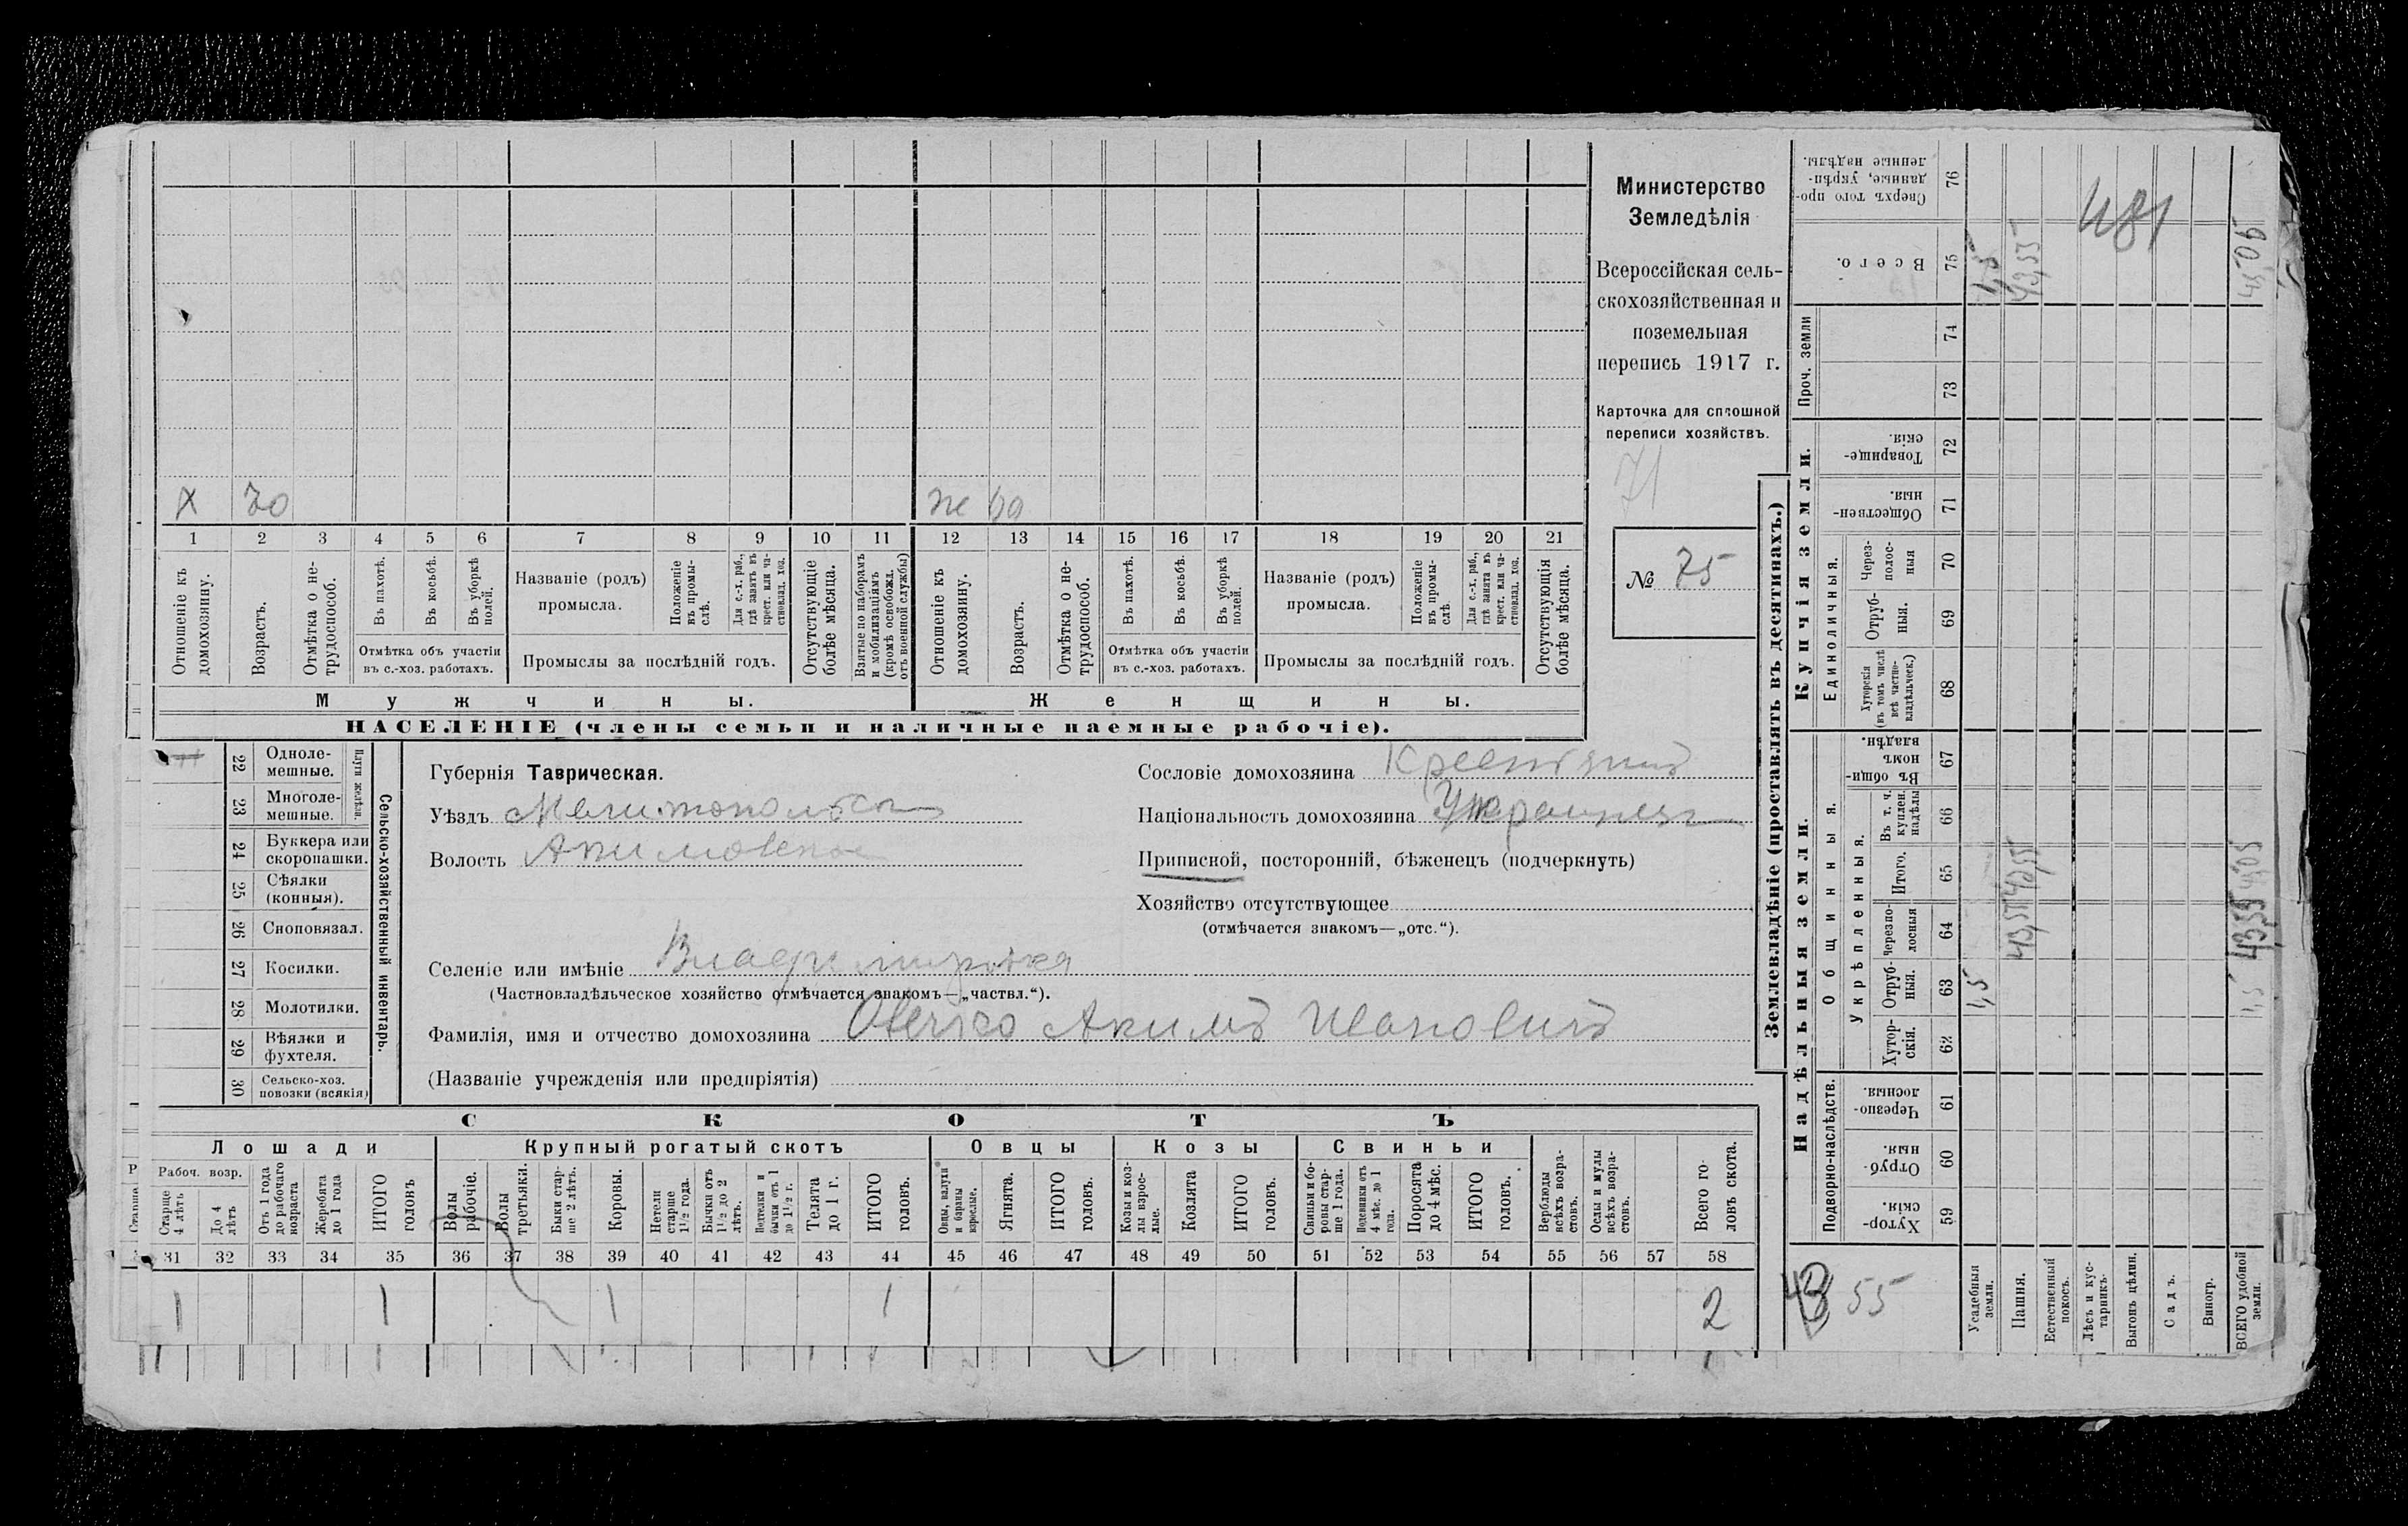 Министерство
Земледѣлія
Всероссійская сель-
скохозяйственная и
поземельная
перепись 1917 г.
Карточка для сплошной
переписи хозяйствъ.
71
№ 75
х 70
же 60
1 2 3 4 5 6 7 8 9 10 11 12 13 14 15 16 17 18 19 20 21
Отношеніе къ домохозяину.
Возрастъ.
Отмѣтка о не-трудоспособ.
Въ пахотѣ.
Въ косьбѣ.
Въ уборкѣ полей.
Отмѣтка объ участіи
въ с.-хоз. работахъ.
Названіе (родъ)
промысла.
Положеніе въ промы-слѣ.
Для с.-х. раб., гдѣ занятъ въ крест. или ча-стновлад. хоз.
Промыслы за послѣдній годъ.
Отсутствующіе болѣе мѣсяца.
Взятые по наборамъ и мобилизаціямъ (кромѣ освобожд. отъ военной службы)
Отношеніе къ домохозяину.
Возрастъ.
Отмѣтка о не-трудоспособ.
Въ пахотѣ.
Въ косьбѣ.
Въ уборкѣ полей.
Отмѣтка объ участіи
въ с.-хоз. работахъ.
Названіе (родъ)
промысла.
Положеніе въ промы-слѣ.
Для с.-х. раб., гдѣ занята въ крест. или ча-стновлад. хоз.
Промыслы за послѣдній годъ.
Отсутствующія болѣе мѣсяца.
Мужчины.
Женщины.
НАСЕЛЕНІЕ (члены семьи и наличные наемные рабочіе).
22 Одноле-мешные.
23 Многоле-мешные.
Плуги желѣзн.
24 Буккера или скоропашки.
25 Сѣялки (конныя).
26 Сноповязал.
27 Косилки.
28 Молотилки.
29 Вѣялки и фухтеля.
30 Сельско-хоз. повозки (всякія)
Сельско-хозяйственный инвентарь.
Губернія Таврическая.
Уѣздъ Мелитопольск
Волость Акимовская
Селеніе или имѣніе Владимировка
(Частновладѣльческое хозяйство отмѣчается знакомъ—„частвл.“).
Фамилія, имя и отчество домохозяина Овечко Акимъ Ивановичъ
(Названіе учрежденія или предпріятія)
Сословіе домохозяина Крестянинъ
Національность домохозяина Украинец
Приписной, посторонній, бѣженецъ (подчеркнуть)
Хозяйство отсутствующее
(отмѣчается знакомъ—„отс.“).
СКОТЪ
Лошади
Крупный рогатый скотъ
Овцы
Козы
Свиньи
Рабоч. возр.
Старше 4 лѣтъ
До 4 лѣтъ
Отъ 1 года до рабочаго возраста
Жеребята до 1 года
ИТОГО головъ
Волы рабочіе.
Волы третьяки.
Быки стар-ше 2 лѣтъ.
Коровы.
Нетели старше 1½ года.
Бычки отъ 1½ до 2 лѣтъ.
Нетелки и бычки отъ 1 до 1½ г.
Телята до 1 г.
ИТОГО головъ.
Овцы, валухи и бараны взрослые.
Ягнята.
ИТОГО головъ.
Козы и коз-лы взрос-лые.
Козлята
ИТОГО головъ.
Свиньи и бо-ровы стар-ше 1 года.
Подсвинки отъ 4 мѣс. до 1 года.
Поросята до 4 мѣс.
ИТОГО головъ.
Верблюды всѣхъ возра-стовъ.
Ослы и мулы всѣхъ возра-стовъ.
Всего го-ловъ скота.
31 32 33 34 35 36 37 38 39 40 41 42 43 44 45 46 47 48 49 50 51 52 53 54 55 56 57 58
1 1 1 1 2
Землевладѣніе (проставлять въ десятинахъ.)
Надѣльныя земли.
Купчія земли.
Проч. земли
Подворно-наслѣдств.
Общинныя.
Укрѣпленныя.
Единоличныя.
59 Хутор-скія.
60 Отруб-ныя.
61 Черезпо-лосныя
62 Хутор-скія.
63 Отруб-ныя.
64 Черезпо-лосныя
65 Итого.
66 Въ т. ч. куплен. надѣлы
67 Въ общи-номъ владѣн.
68 Хуторскія (въ томъ числѣ всѣ частно-владѣльческ.)
69 Отруб-ныя.
70 Через-полос-ныя
71 Обществен-ныя.
72 Товарище-скія.
73
74
75 Всего.
76 Сверхъ того про-данные, укрѣп-ленные надѣлы.
Усадебныя земли.
Пашня.
Естественный покосъ.
Лѣсъ и кус-тарникъ.
Выгонъ цѣлин.
Садъ.
Виногр.
ВСЕГО удобной земли.
43 55
1,5
43,55
1,5
43,55
481
45,05